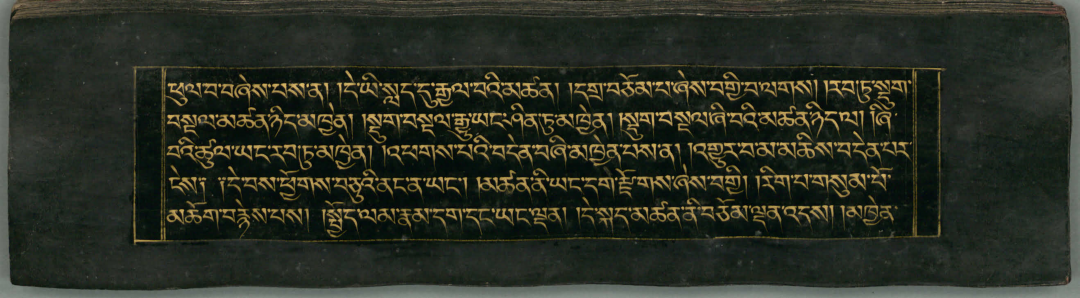 ཕུལ་བ་བཞེས་པས་ན། །དེ་ཡི་སླད་དུ་རྒྱལ་བའི་མཚན། །དགྲ་བཅོམ་པ་ཞེས་བགྱི་བ་ལགས། །རབ་ཏུ་སྡུག་
བསྔལ་མཚན་ཉིད་མཁྱེན། །སྡུག་བསྔལ་རྒྱུ་ཡང་ཤིན་ཏུ་མཁྱེན། །སྡུག་བསྔལ་ཞི་བའི་མཚན་ཉིད་ལ། །ཞི་
བའི་ཚུལ་ཡང་རབ་ཏུ་མཁྱེན། །འཕགས་པའི་བདེན་བཞི་མཁྱེན་པས་ན། །འགྱུར་བ་མ་མཆིས་བདེན་པར་
ངེས། །དེ་བས་ཕྱོགས་བཅུའི་ནང་ན་ཡང་། །མཚན་ནི་ཡང་དག་རྫོགས་ཞེས་བགྱི། །རིག་པ་གསུམ་པོ་
མཆོག་བརྙེས་པས། །སྤྱོད་ལམ་རྣམ་དག་དང་ཡང་ལྡན། །དེ་སྐད་མཚན་ནི་བཅོམ་ལྡན་འདས། །མཁྱེན་